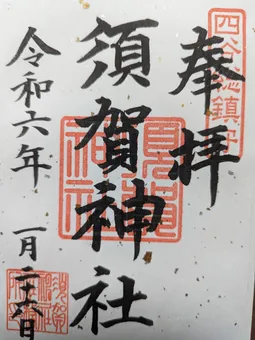 四谷総鎮守
奉拝
須賀神社
令和六年
一月二十六日